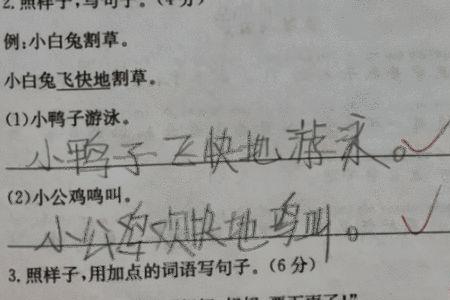 2.照样子,写句子。(4分)
例:小白兔割草。
小白兔飞快地割草。
(1)小鸭子游泳。
小鸭子飞快地游永。
(2)小公鸡鸣叫。
小公鸡欢快地鸣叫。
3.照样子,用加点的词语写句子。(6分)